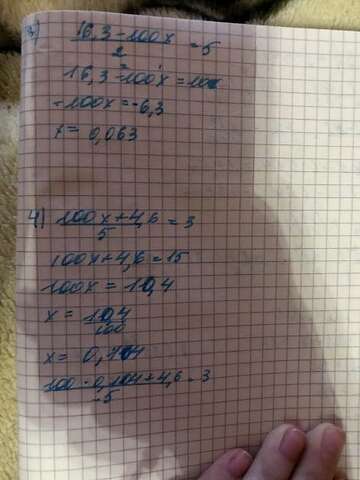 3) (16,3-100x)/2 = 5
16,3-100x=10
-100x=-6,3
x= 0,063
4) (100x+4,6)/5 = 3
100x+4,6=15
100x = 10,4
x = 10,4/100
x= 0,104
(100·0,104+4,6)/5 = 3